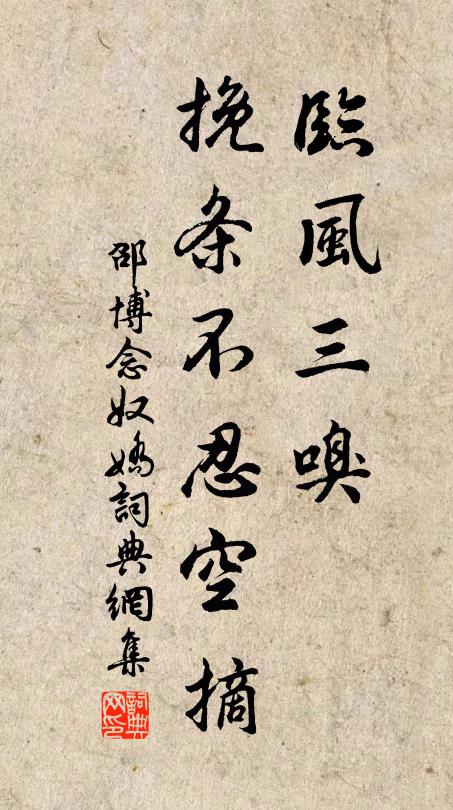 臨風三嗅
挽条不忍空摘
邵博念奴嬌詞典網集
詞典网印